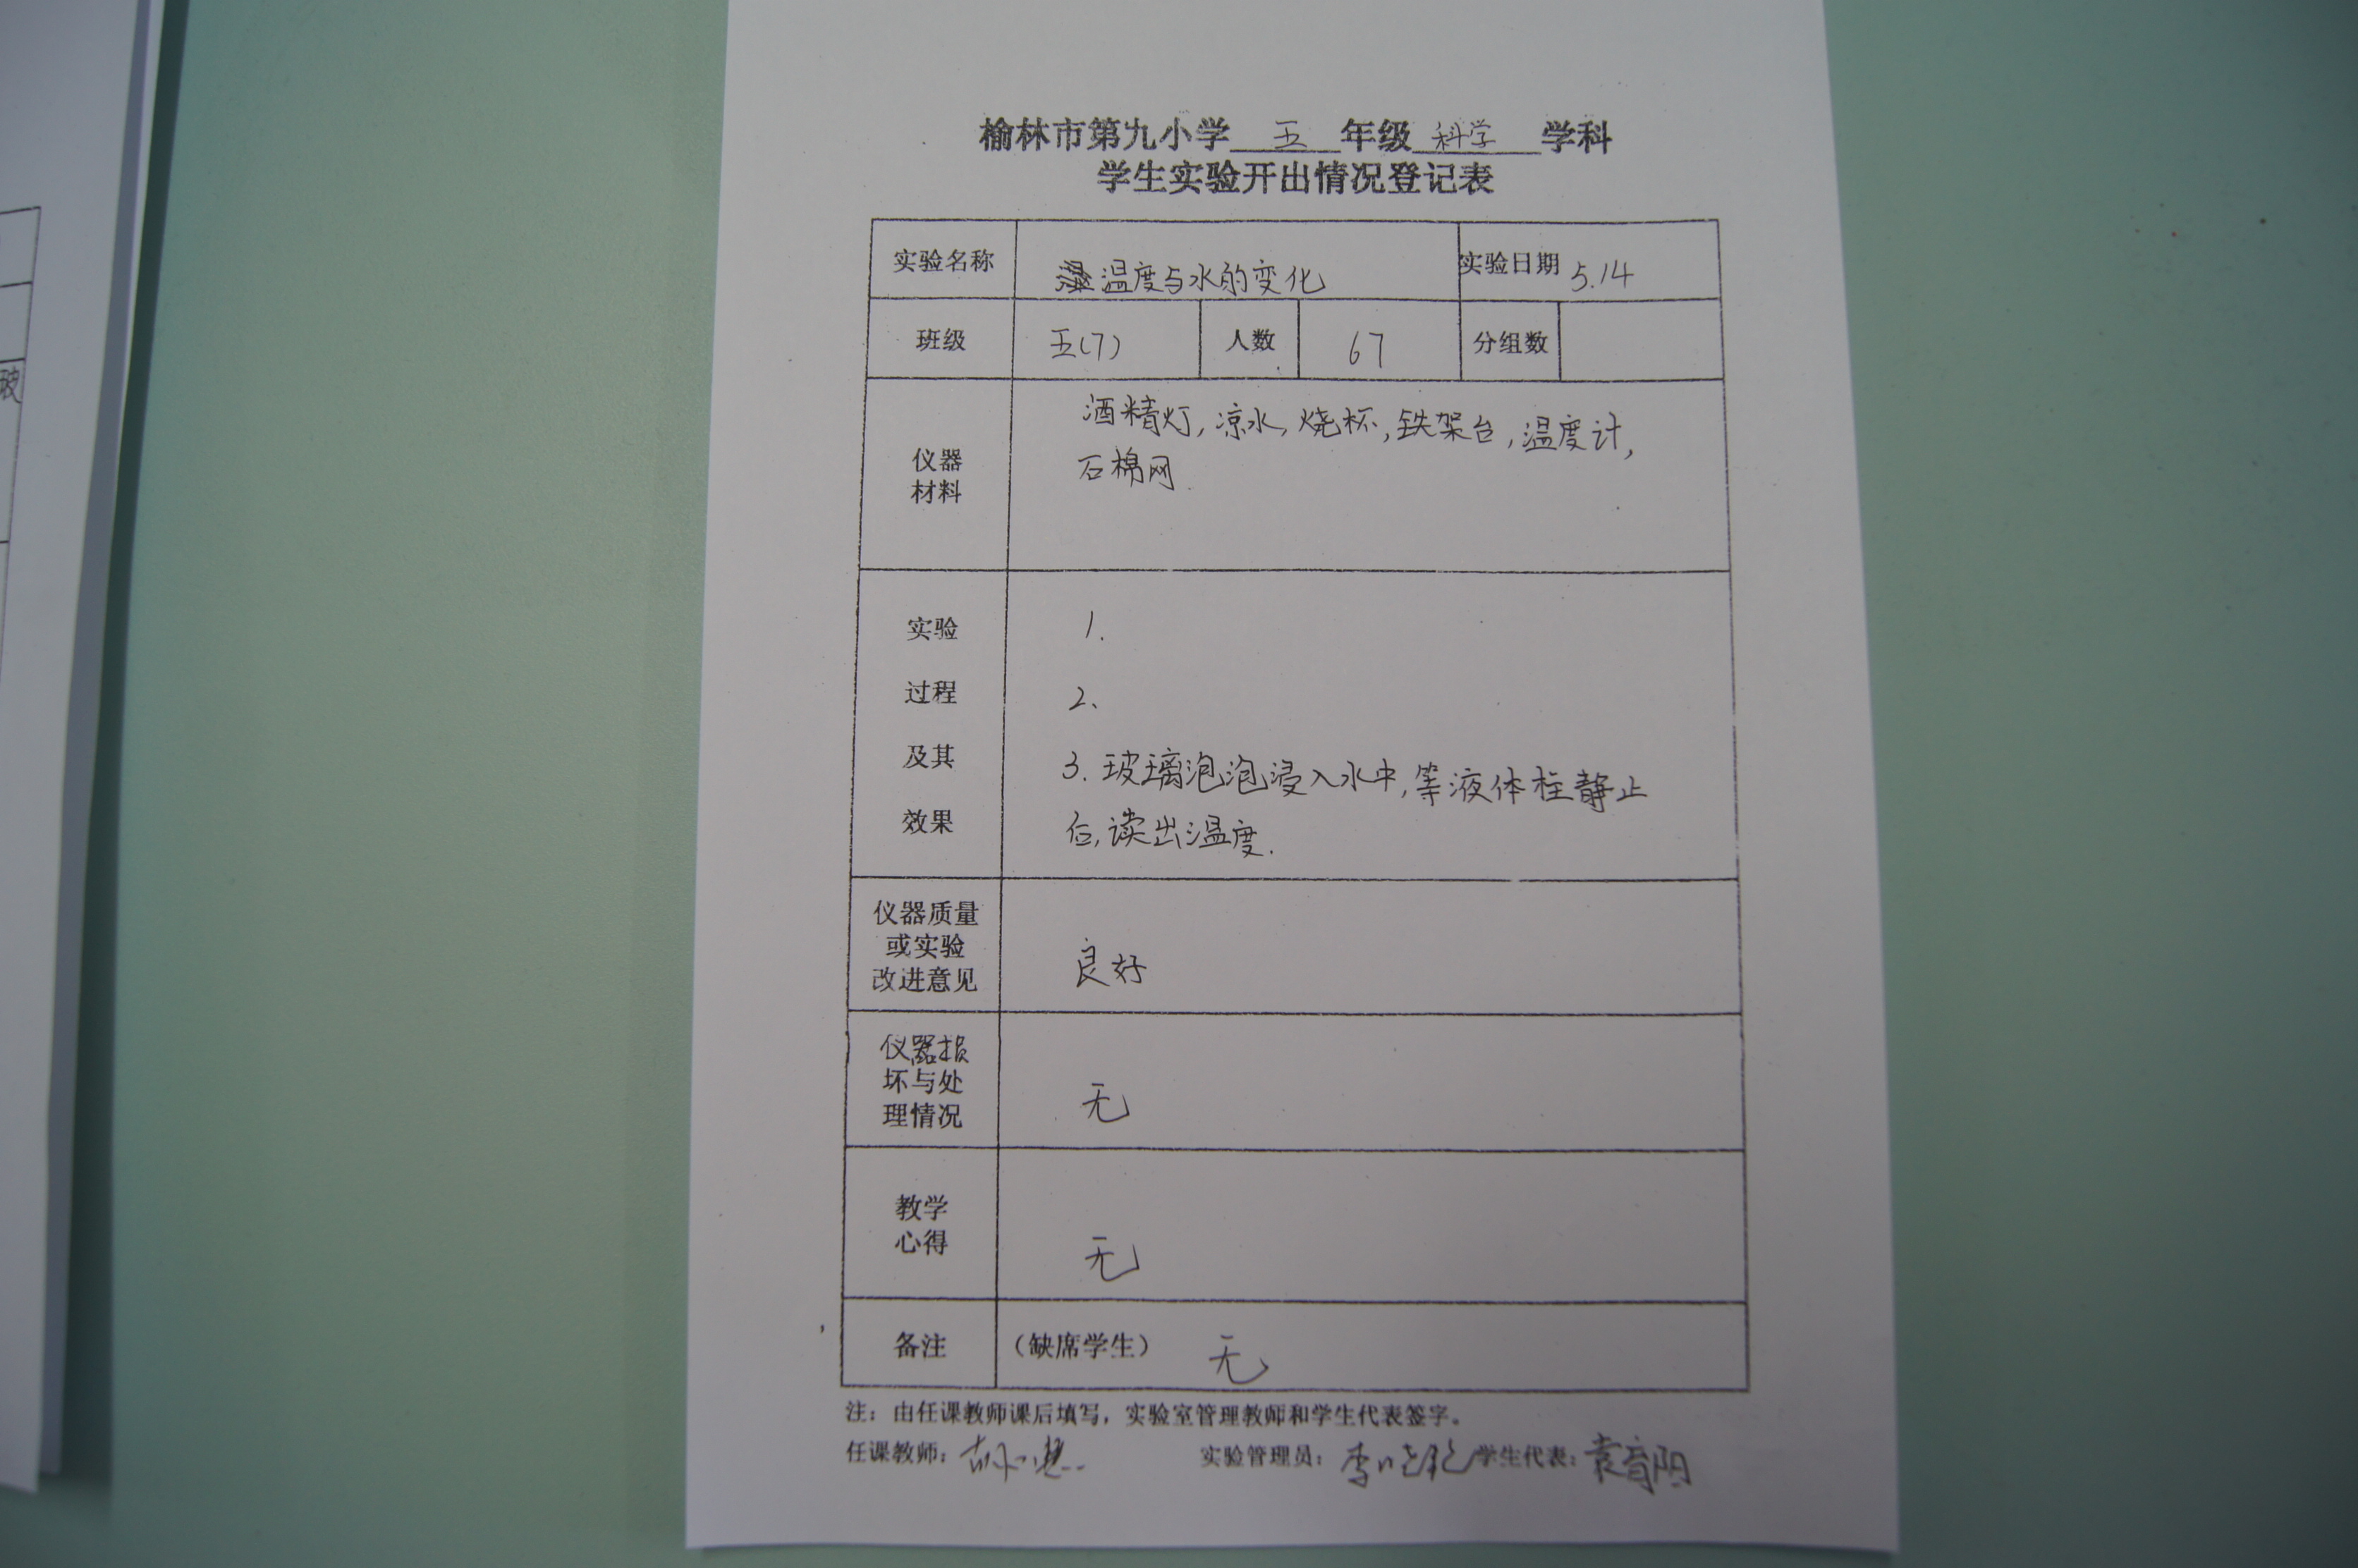 榆林市第九小学 五 年级 科学 学科
学生实验开出情况登记表
实验名称 温度与水的变化 实验日期 5.14
班级 五(7) 人数 67 分组数
仪器
材料
酒精灯,凉水,烧杯,铁架台,温度计,
石棉网
实验
过程
及其
效果
1.
2、
3.玻璃泡泡浸入水中,等液体柱静止
后,读出温度.
仪器质量
或实验
改进意见
良好
仪器损
坏与处
理情况
无
教学
心得
无
备注 (缺席学生) 无
注:由任课教师课后填写,实验室管理教师和学生代表签字。
任课教师: 实验管理员: 学生代表:
玻